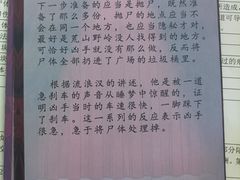 下一步准备的应当是抛尸，既然准
备了那么多份，抛尸的地点应当不
会在同一个地方，也应当隐秘才对，
最好是荒山野岭没人找得到的地方。
可恰好凶手就没有那么做，反而将
尸体全部扔进了广场的垃圾桶里。
根据流浪汉的讲述，他是被一道
急刹车的声音从睡梦中惊醒的，证
明凶手当时的车速很快，一脚踩下
了刹车。这一系列的反应表示凶手
很急，急于将尸体处理掉。